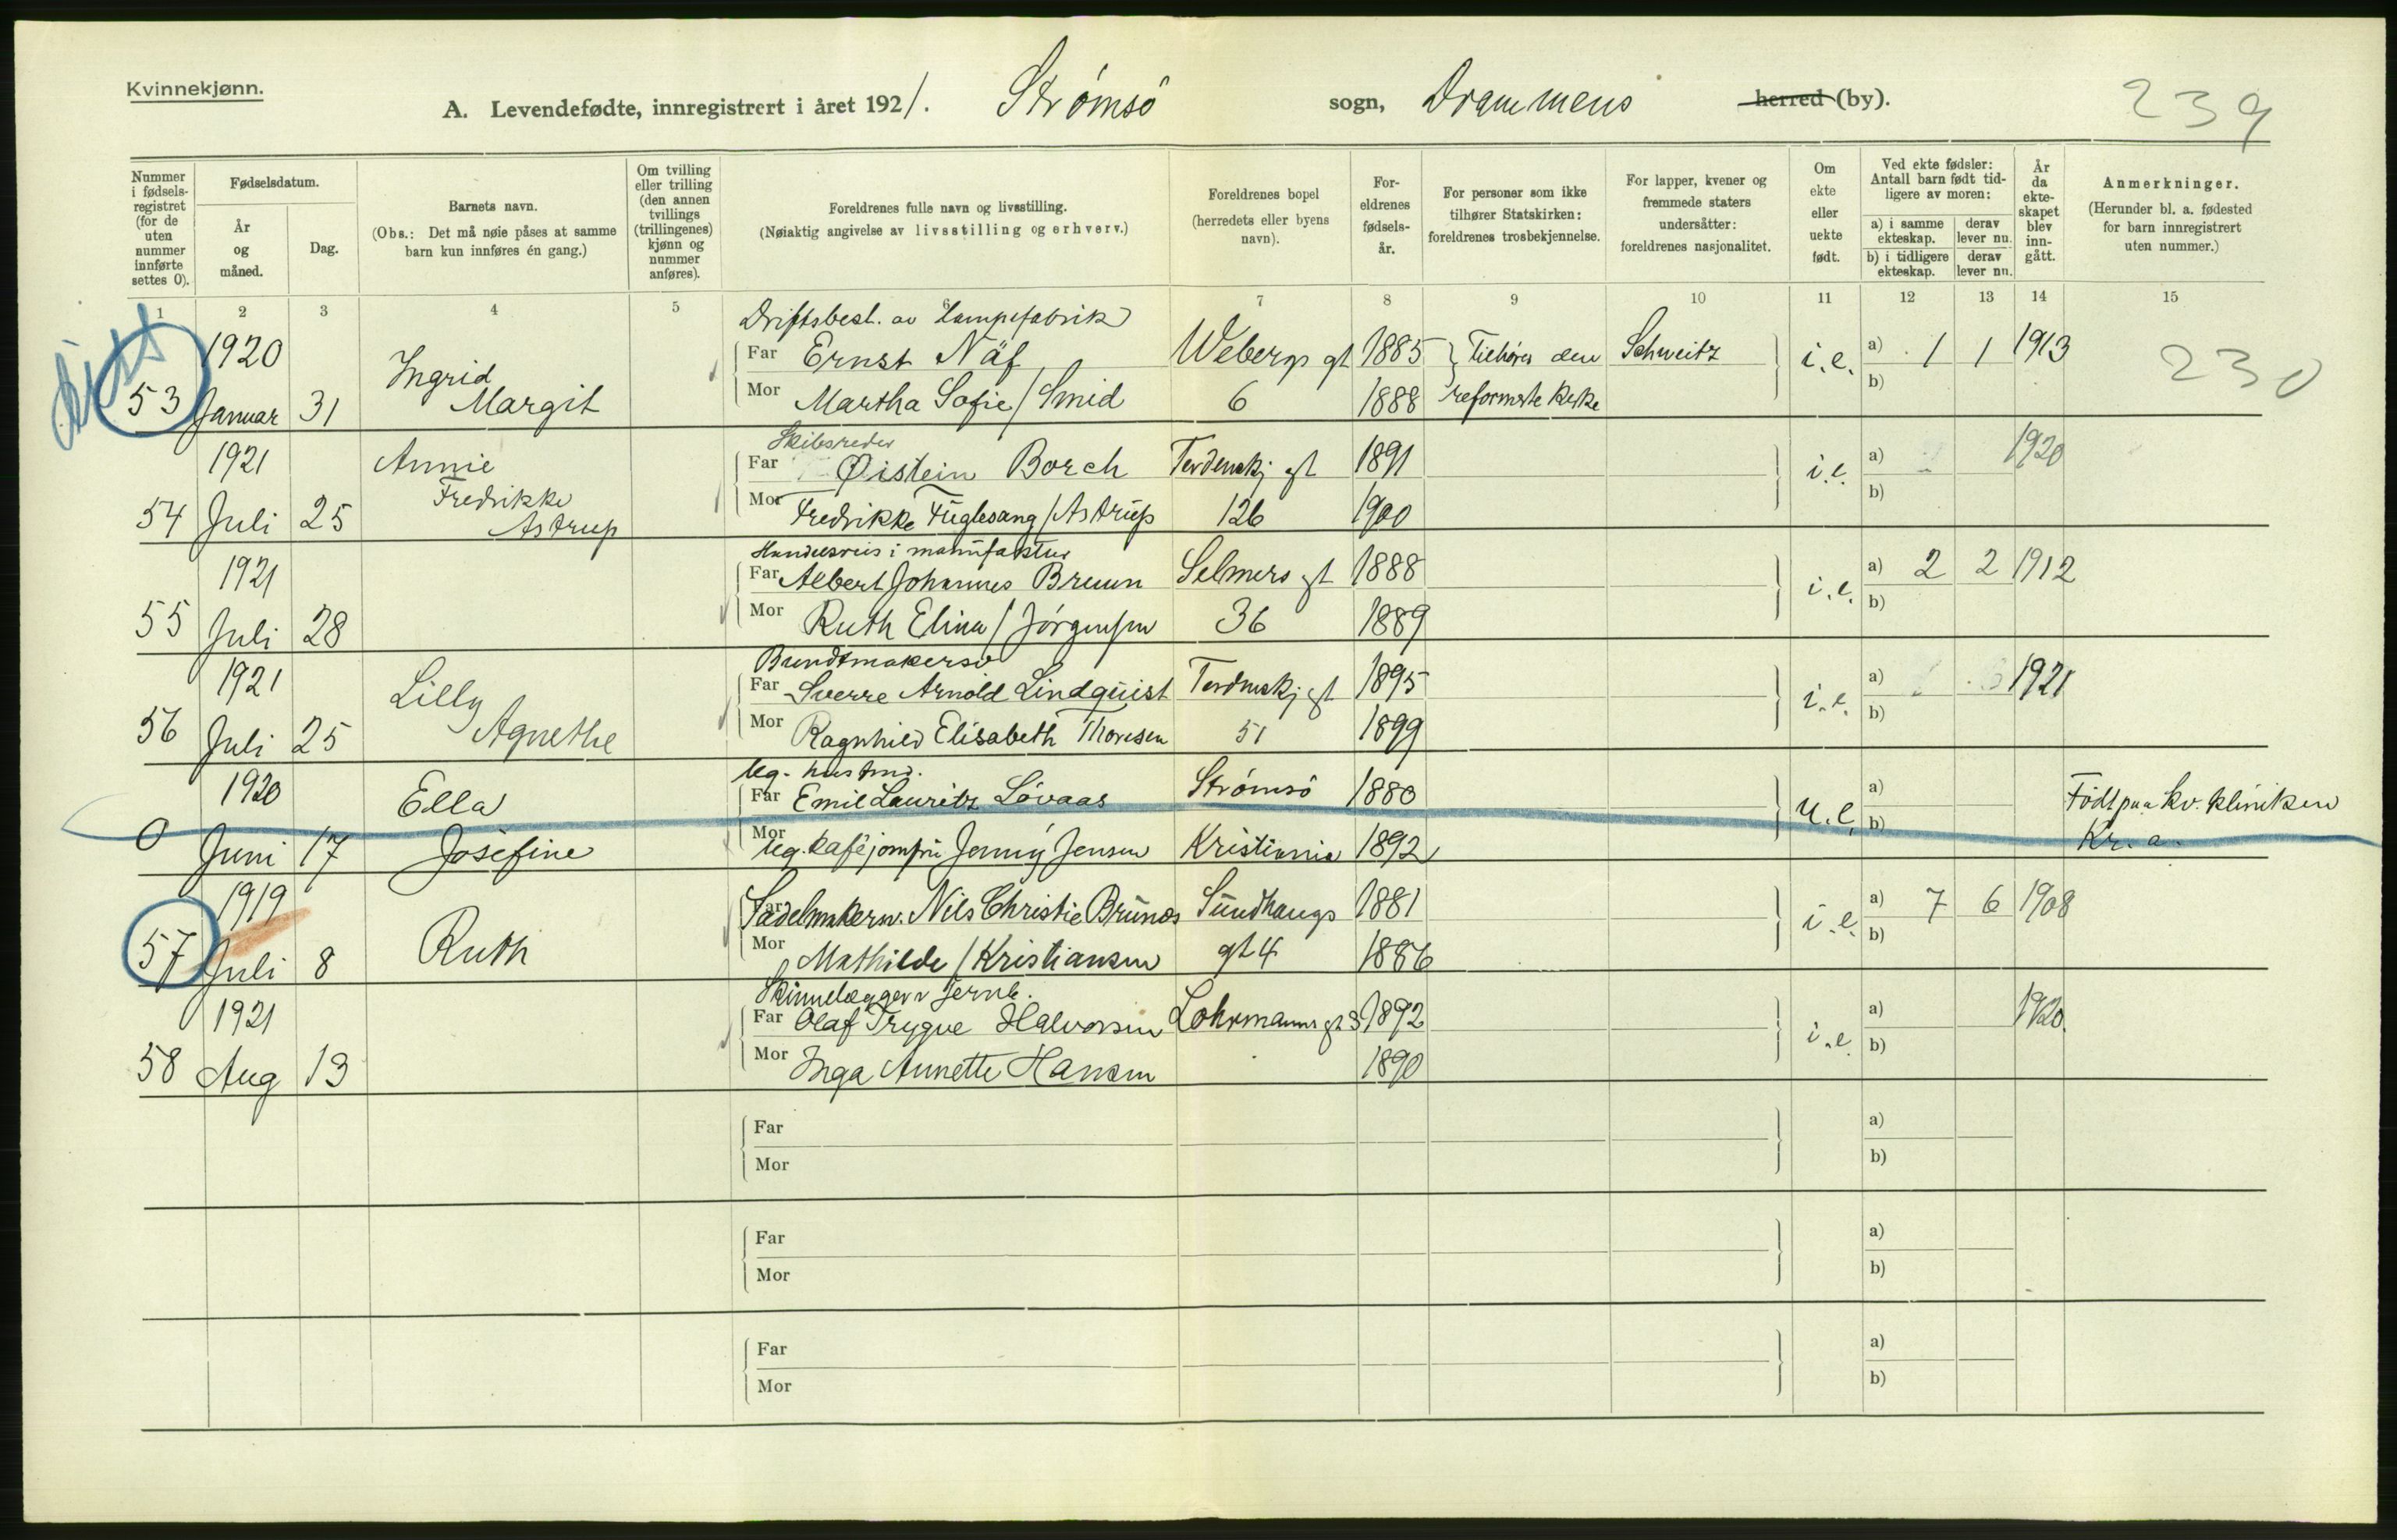 Kvinnekjønn.
A. Levendefødte, innregistrert i året 1921. Strømsö sogn, Drammens herred (by). 239
Nummer i fødsels-registret (for de uten nummer innførte settes 0).
Fødselsdatum.
År og måned.
Dag.
Barnets navn.
(Obs.: Det må nøie påses at samme barn kun innføres én gang.)
Om tvilling eller trilling (den annen tvillings (trillingenes) kjønn og nummer anføres).
Foreldrenes fulle navn og livsstilling.
(Nøiaktig angivelse av livsstilling og erhverv.)
Foreldrenes bopel (herredets eller byens navn).
For-eldrenes fødsels-år.
For personer som ikke tilhører Statskirken: foreldrenes trosbekjennelse.
For lapper, kvener og fremmede staters undersåtter: foreldrenes nasjonalitet.
Om ekte eller uekte født.
Ved ekte fødsler: Antall barn født tid-ligere av moren:
a) i samme ekteskap. derav lever nu.
b) i tidligere ekteskap. derav lever nu.
År da ekte-skapet blev inn-gått.
Anmerkninger.
(Herunder bl. a. fødested for barn innregistrert uten nummer.)
1 2 3 4 5 6 7 8 9 10 11 12 13 14 15
Driftsbest. av Lampefabrik
1920 Ingrid Far Ernst Näf Webergs gt 1885 Tilhører den Schweitz i.e. a) 1 1 1913 230
53 Januar 31 Margit Mor Martha Sofie / Smid 6 1888 reformerte kirke b)
Skibsreder
1921 Annie Far Øistein Borch Tordenskj gt 1891 i.e. a) 1920
Fredrikke
54 Juli 25 Astrup Mor Fredrikke Fuglesang / Astrup 126 1900 b)
i manufaktur
1921 Far Albert Johannes Bruun Selmers gt 1888 i.e. a) 2 2 1912
55 Juli 28 Mor Ruth Elina / Jörgensen 36 1889 b)
Bundtmakersv
1921 Lilly Far Sverre Arnold Lindquist Tordenskj gt 1895 i.e. a) 1921
56 Juli 25 Agnethe Mor Ragnhild Elisabeth Thoresen 51 1899 b)
Ug.
1920 Ella Far Emil Lauritz Lövaas Strömsö 1880 u.e. a) Födt paa Kv. kliniken
0 Juni 17 Josefine Mor Ug. kafejomfru Jenny Jensen Kristiania 1892 b) Kr. a.
1919 Ruth Far Sadelmakerm. Nils Christie Brunæs Sundhaugs 1881 i.e. a) 7 6 1908
57 Juli 8 Mor Mathilde / Kristiansen gt 4 1886 b)
Skinnelægger v Jernb.
1921 Far Olaf Trygve Halvorsen Lohrmanns gt 3 1892 i.e. a) 1920
58 Aug 13 Mor Inga Annette Hansen 1890 b)
Far a)
Mor b)
Far a)
Mor b)
Far a)
Mor b)